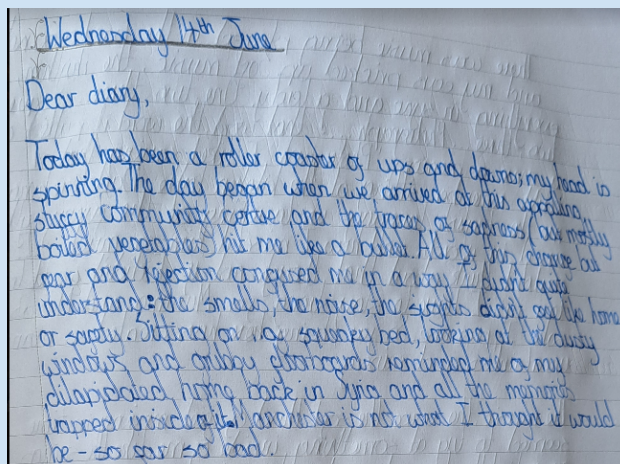 Wednesday 14th June
Dear diary,
Today has been a roller coaster of ups and downs; my head is
spinning. The day began when we arrived at this appalling,
stuffy community centre and the traces of sadness (but mostly
boiled vegetables) hit me like a bullet. All of this change but
fear and rejection confused me in a way I didn't quite
understand: the smells, the noise, the sights didn't feel like home
or safety. Sitting on a squeaky bed, looking at the dusty
windows and grubby floorboards reminded me of my
dilapidated home back in Syria and all the memories
trapped inside of it. Manchester is not what I thought it would
be - so far so bad.